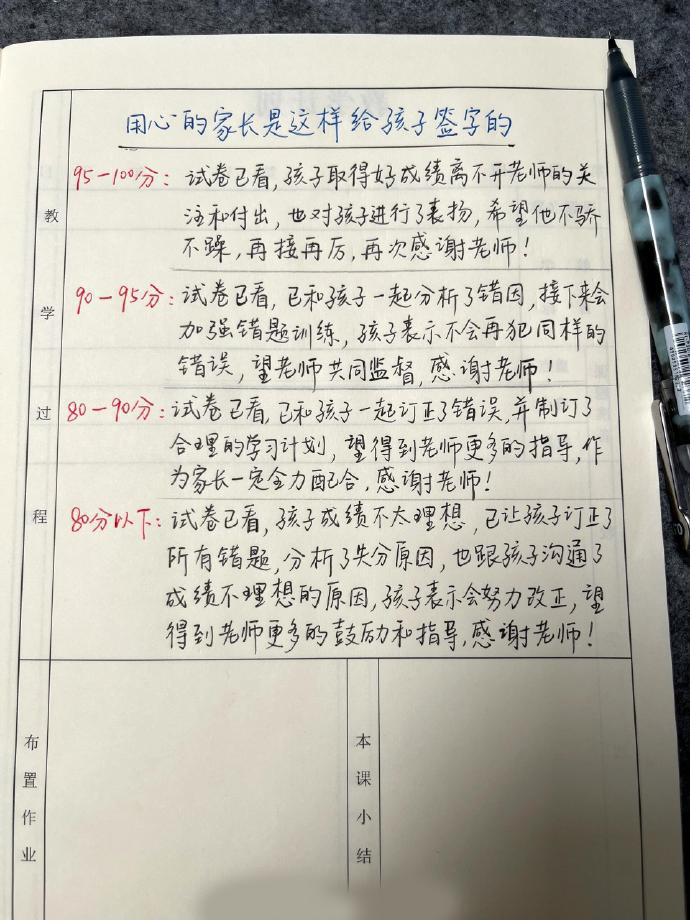 用心的家长是这样给孩子签字的
95-100分：试卷已看，孩子取得好成绩离不开老师的关
注和付出，也对孩子进行了表扬，希望他不骄
不躁，再接再厉，再次感谢老师！
90-95分：试卷已看，已和孩子一起分析了错因，接下来会
加强错题训练，孩子表示不会再犯同样的
错误，望老师共同监督，感谢老师！
80-90分：试卷已看，已和孩子一起订正了错误，并制订了
合理的学习计划，望得到老师更多的指导，作
为家长一定全力配合，感谢老师！
80分以下：试卷已看，孩子成绩不太理想，已让孩子订正了
所有错题，分析了失分原因，也跟孩子沟通了
成绩不理想的原因，孩子表示会努力改正，望
得到老师更多的鼓励和指导，感谢老师！
教学过程
布置作业
本课小结